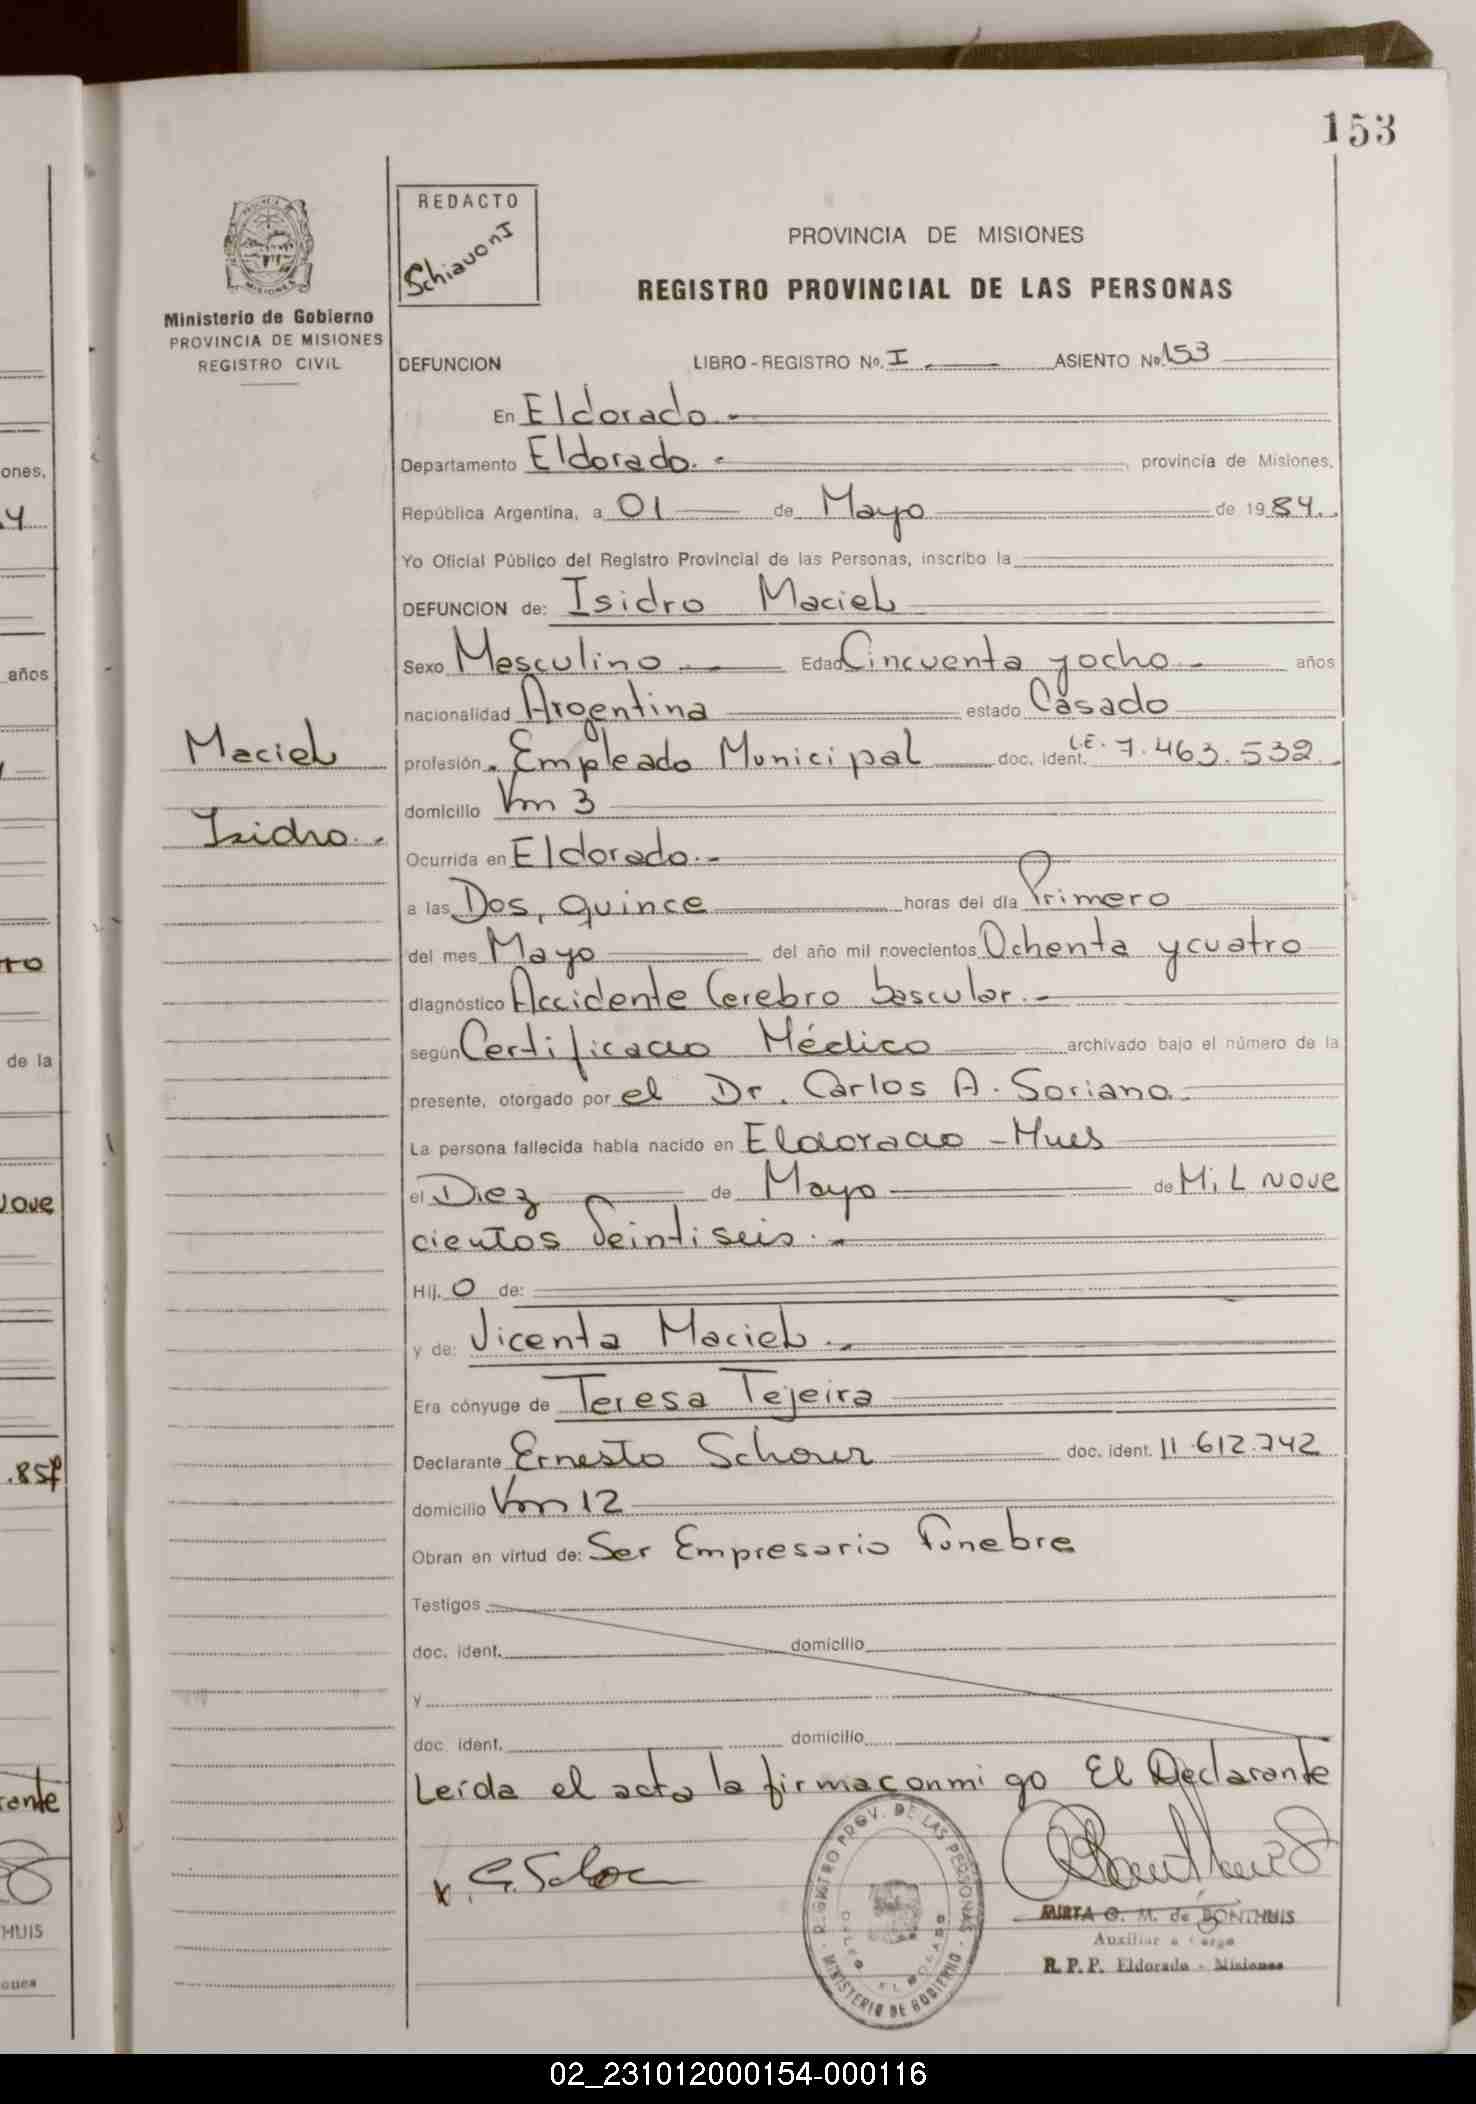 153
REDACTO
SchiavonI
PROVINCIA DE MISIONES
REGISTRO PROVINCIAL DE LAS PERSONAS
Ministerio de Gobierno
PROVINCIA DE MISIONES
REGISTRO CIVIL
DEFUNCION LIBRO - REGISTRO No. I ASIENTO No 153
En Eldorado
Departamento Eldorado. provincia de Misiones,
República Argentina, a 01 de Mayo de 1984.
Yo Oficial Público del Registro Provincial de las Personas, inscribo la
DEFUNCION de: Isidro Maciel
Sexo Masculino Edad Cincuenta y ocho años
nacionalidad Argentina estado Casado
Maciel
Isidro.
profesión. Empleado Municipal doc. ident. L.E. 7.463.532
domicilio Km 3
Ocurrida en Eldorado.
a las Dos, quince horas del día Primero
del mes Mayo del año mil novecientos Ochenta y cuatro
diagnóstico Accidente Cerebro bascular.
según Certificado Médico archivado bajo el número de la
presente, otorgado por el Dr. Carlos A. Soriano.
La persona fallecida había nacido en Eldorado - Mnes
el Diez de Mayo de Mil nove
cientos Veintiseis.
Hij. o de:
y de: Vicenta Maciel.
Era cónyuge de Teresa Tejeira
Declarante Ernesto doc. ident. 11.612.742
domicilio Km 12
Obran en virtud de: Ser Empresario Funebre
Testigos
doc. ident. domicilio
y
doc. ident. domicilio
Leída el acta la firma conmigo El Declarante
REGISTRO PROV. DE LAS PERSONAS
MINISTERIO DE GOBIERNO
ELDORADO
MIRTA G. M. de BONTHUIS
Auxiliar a Cargo
R. P. P. Eldorado - Misiones
ones,
4
años
de la
nove
.857
rante
HUIS
ones
02_231012000154-000116